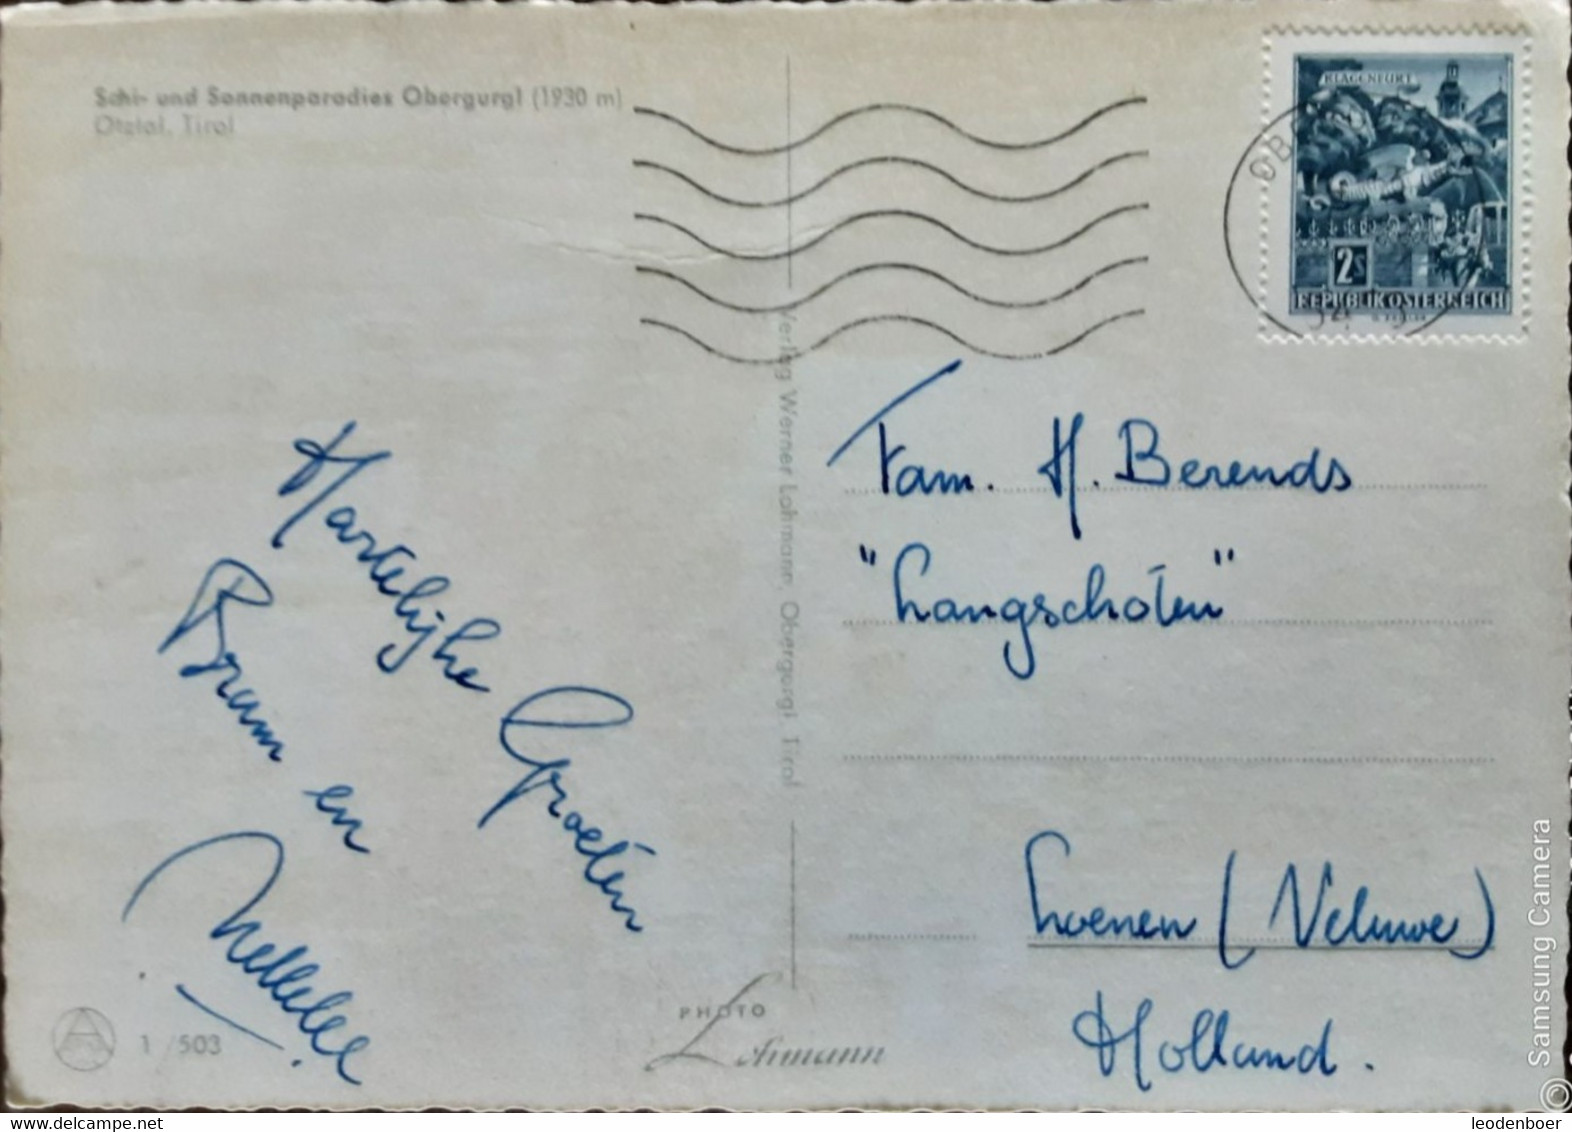 Schi- und Sonnenparadies Obergurgl (1930 m)
Ötztal, Tirol
KLAGENFURT
2s
REPUBLIK ÖSTERREICH
Verlag Werner Lohmann, Obergurgl Tirol
Fam. H. Berends
"Langschoten"
Loenen (Veluwe)
Holland.
Hartelijke Groeten
Bram en
1/503
PHOTO
Lohmann
© Samsung Camera
delcampe.net
leodenboer